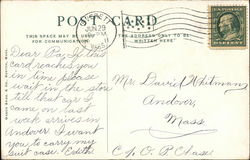 POST CARD
THIS SPACE MAY BE USED
FOR COMMUNICATION
THE ADDRESS ONLY TO BE
WRITTEN HERE
JUN 25
Dear Pa: If this
card reaches you
in time please
wait in the store
till that age I
came on last
week arrives in
Andover. I want
you to carry my
suit case. Edith
Mr. David Whitman
Andover,
Mass
C/o O. P. Chase